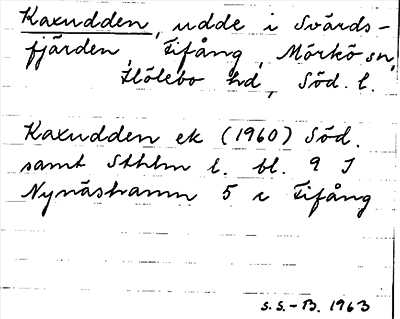 Kaxudden, udde i Svärds-
fjärden, Fifång, Mörkö sn,
Hölebo hd, Söd. l.
Kaxudden ek (1960) Söd.
samt Sthlm l. bl. 9 I
Nynäshamn 5 c Fifång
S.S.-B. 1963